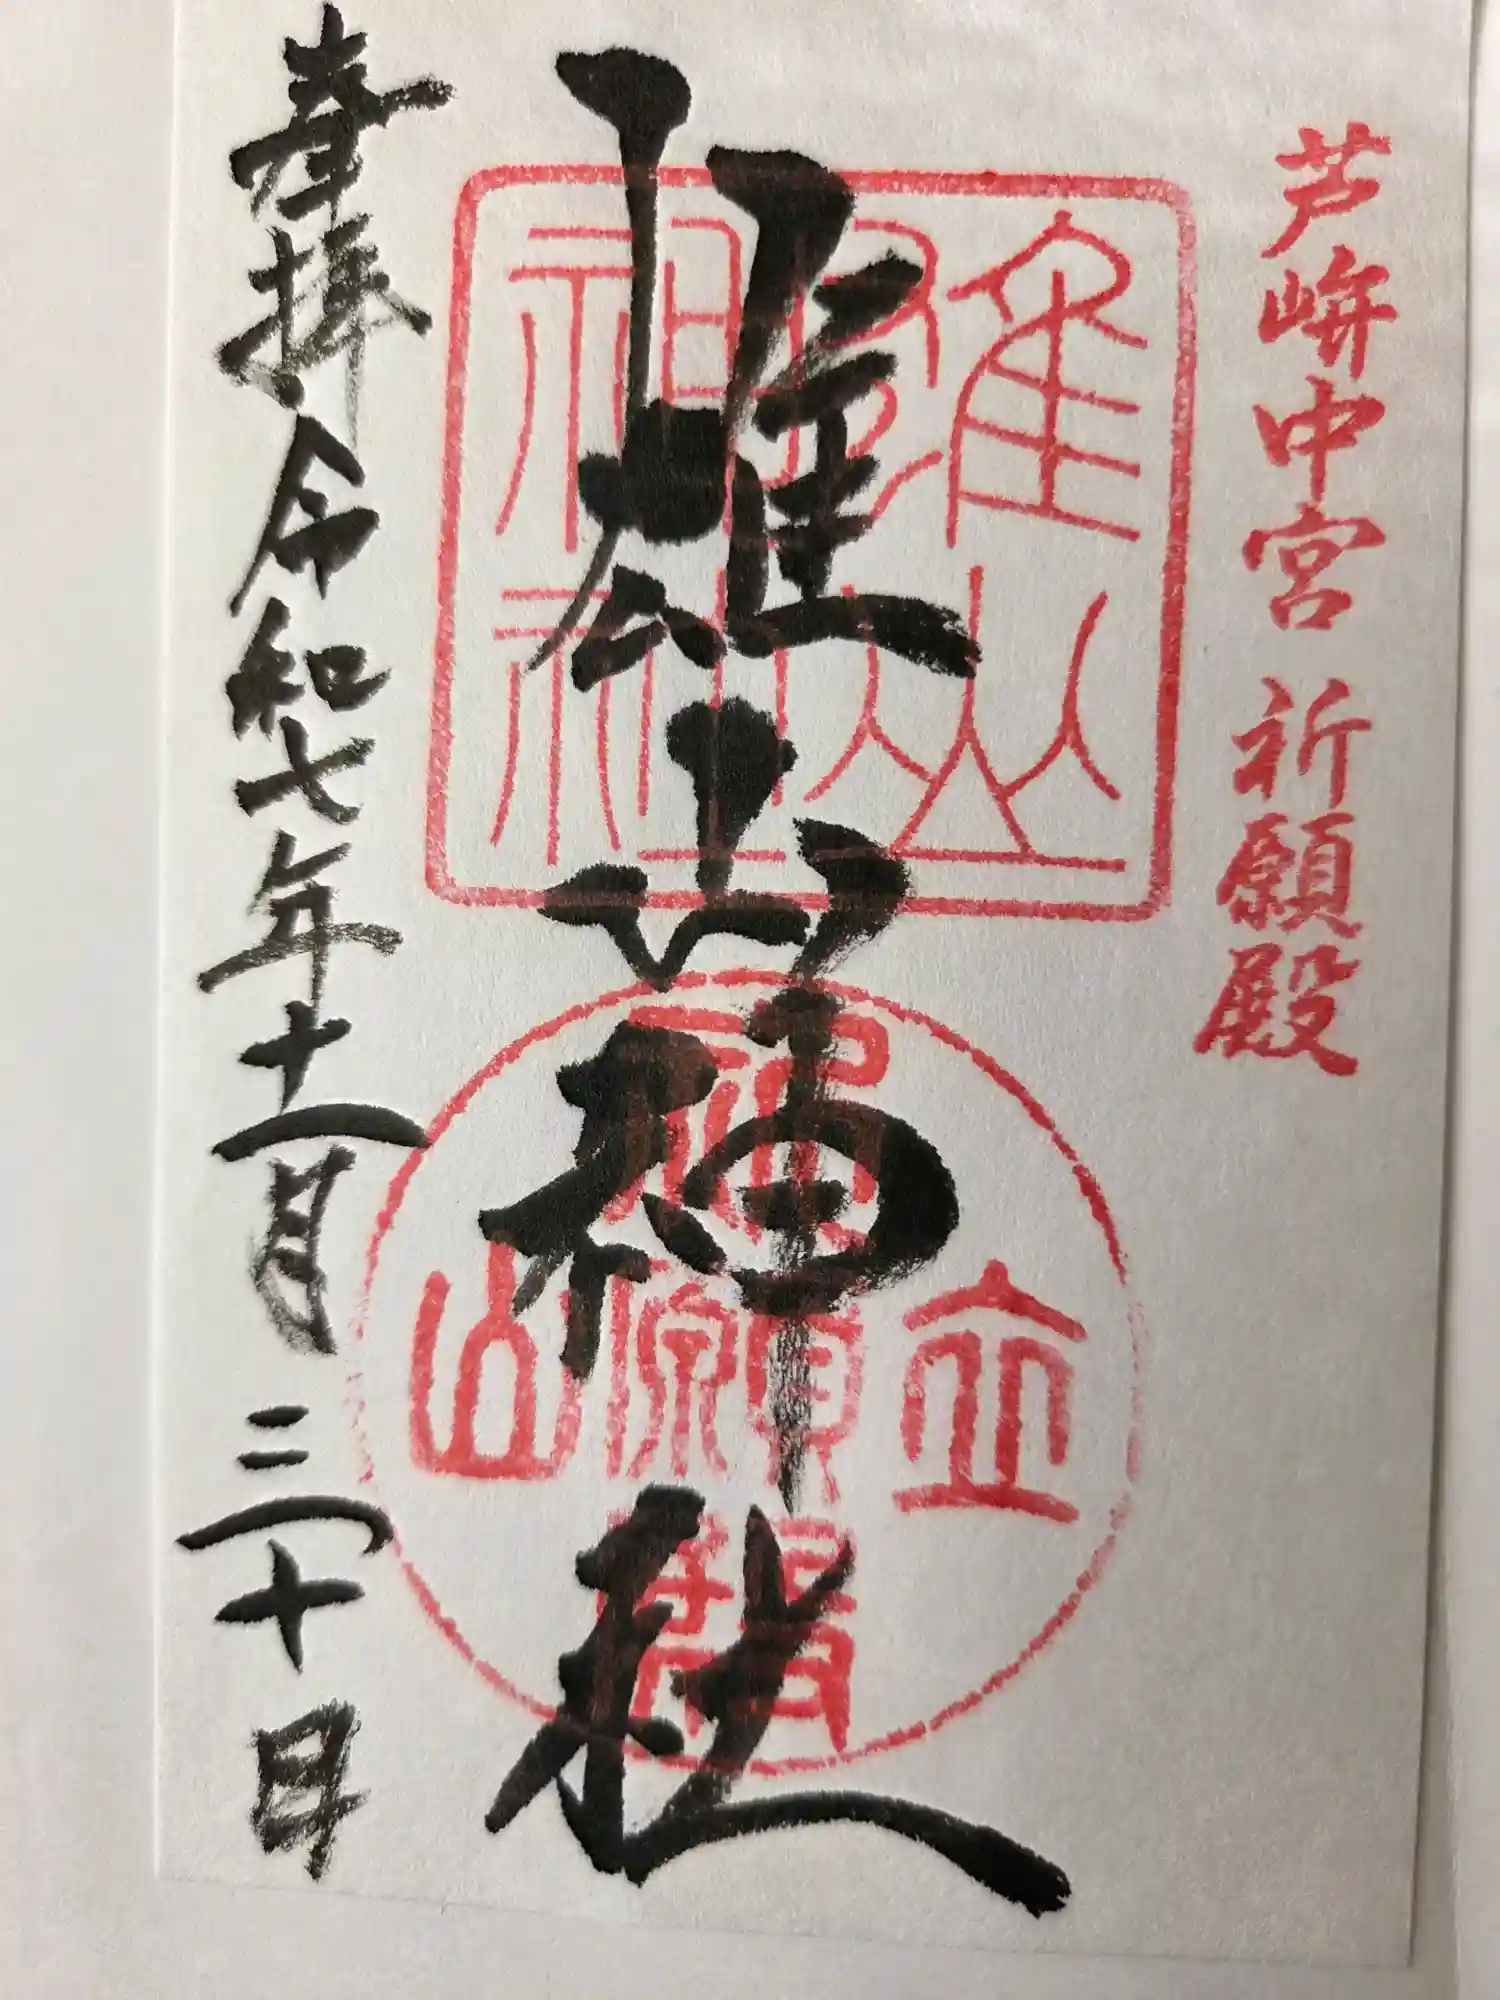 芦峅中宮 祈願殿
雄山神社
雄山
神社
立山
祈願殿
奉拝 令和七年十一月二十日